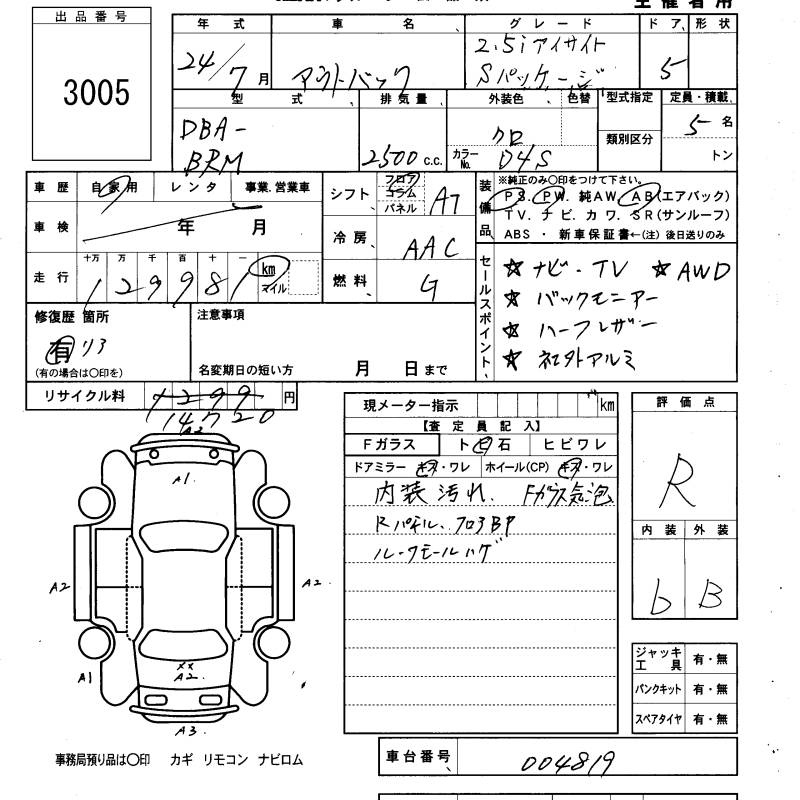 主催者用
出品番号
3005
年式 車名 グレード ドア 形状
24/7月 アウトバック 2.5iアイサイト Sパッケージ 5
型式 排気量 外装色 色替 型式指定 定員・積載
DBA-BRM 2500c.c. クロ カラーNo. D4S 類別区分 5名
トン
車歴 自家用 レンタ 事業.営業車
シフト フロア コラム パネル AT
装備品 ※純正のみ〇印をつけて下さい。
PS. PW. 純AW. AB(エアバック)
TV. ナビ. カワ. SR(サンルーフ)
ABS ・ 新車保証書←(注) 後日送りのみ
車検 年 月
冷房 AAC
走行 十万 万 千 百 十 一
129981 km マイル
燃料 G
セールスポイント
☆ ナビ・TV ☆ AWD
☆ バックモニター
☆ ハーフレザー
☆ 社外アルミ
修復歴 箇所
有 リア
(有の場合は〇印を)
注意事項
名変期日の短い方 月 日まで
リサイクル料 円
14720
現メーター指示 km
【査定員記入】
Fガラス トビ石 ヒビワレ
ドアミラー キズ・ワレ ホイール(CP) キズ・ワレ
内装汚れ. Fガラス気泡
Rパネル、フロアBP
ルーフモールハゲ
評価点
R
内装 外装
b B
A2
A1
A2
A2.
A1
××
A2
A3
ジャッキ工具 有・無
パンクキット 有・無
スペアタイヤ 有・無
事務局預り品は〇印 カギ リモコン ナビロム
車台番号 004819